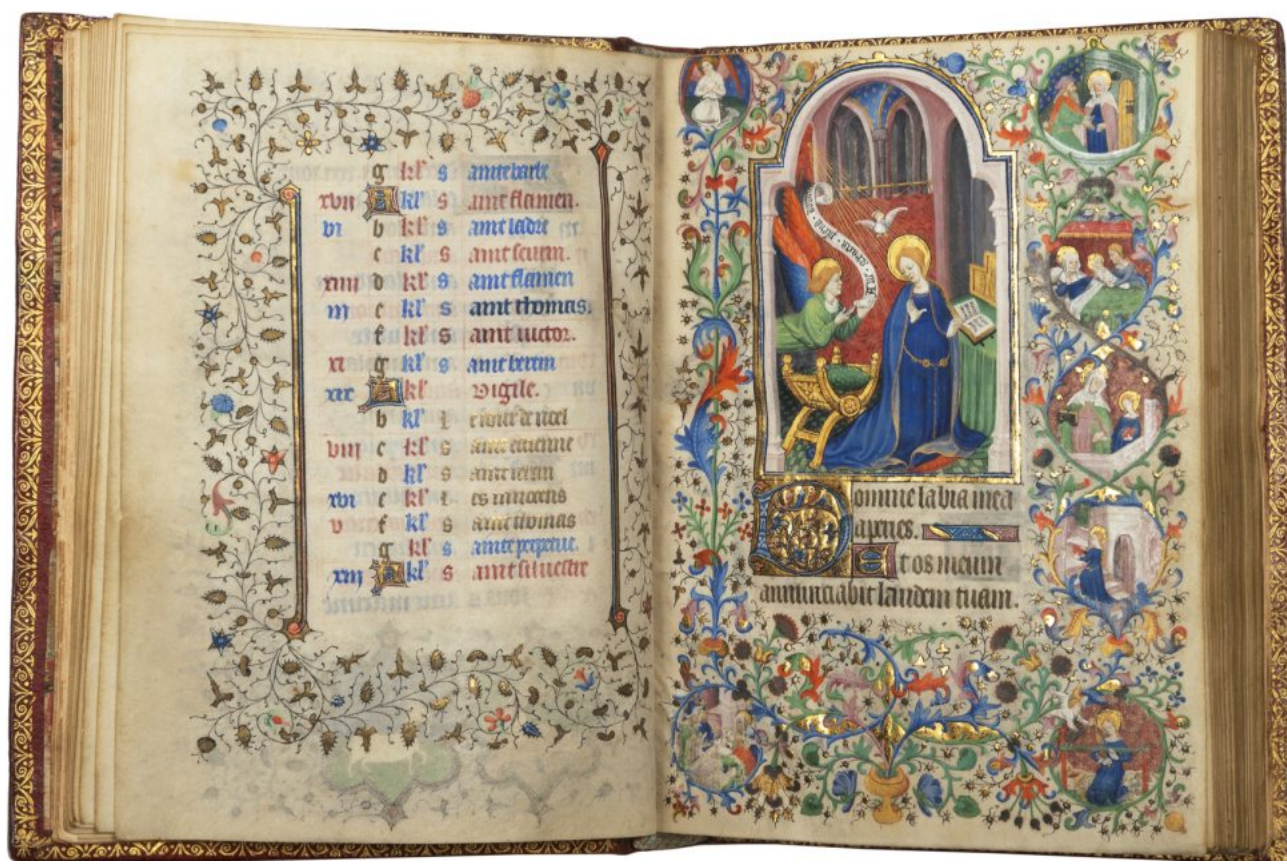 g kl' s ainte
xvii A kl' s aint flamen.
vi b kl' s aint ladre
c kl' s aint
xiiii d kl' s aint flamen
iii e kl' s aint thomas.
f kl' s aint uictor.
xi g kl' s aint
xix A kl' vigile.
b kl' l e iour de noel
viii c kl' s aint
d kl' s aint
xvi e kl' l es innocens
v f kl' s aint thomas
g kl' s ainte perpetue.
xiii A kl' s aint siluestre
Aue gracia plena
Domine labia mea
aperies.
Et os meum
annunciabit laudem tuam.